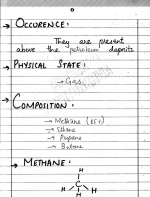 → OCCURENCE:
They are present
above the petroleum deposits
→ PHYSICAL STATE:
→ Gas.
→ COMPOSITION:
→ Methane (85%)
→ Ethane
→ Propane
→ Butane
→ METHANE:
H
C
H H